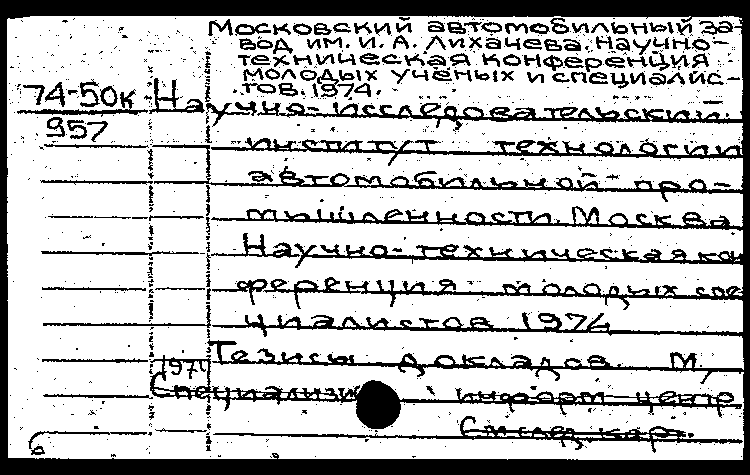 Московский автомобильный за-
вод им. И. А. Лихачева. Научно-
техническая конференция
молодых ученых и специалис-
тов. 1974.
74-50к
957
Научно-исследовательский
институт технологии
автомобильной про-
мышленности. Москва
Научно-техническая кон
ференция молодых спе
циалистов 1974
Тезисы докладов. М,
1974
информ-центр
См. след. карт.
6